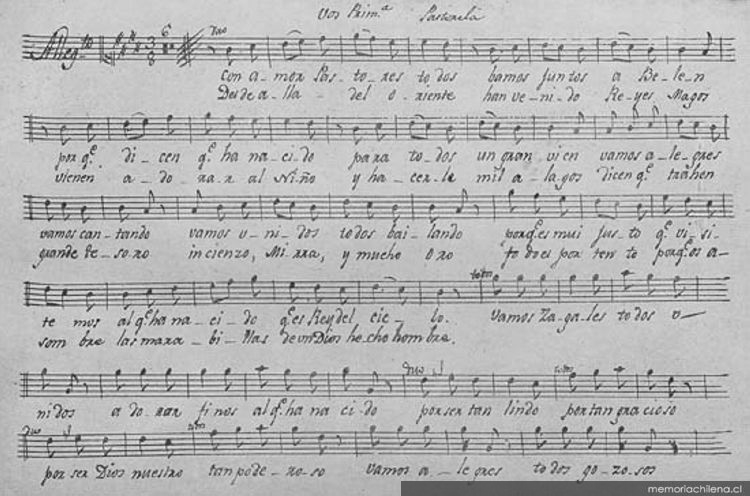 Voz Prim.ª Pastorela
Alleg.to 3 8 6 Duo
con a-mor Pas-to-res to-dos bamos juntos a Be-len
Desde a-lla-del o-riente han ve-ni-do Re-yes Magos
porq.e di-cen q.e ha na-ci-do para to-dos un gran vien vamos a-le-gres
vienen a-do-rar al Ni-ño y ha-cer-le mil a-lagos dicen q.e trahen
vamos can-tando vamos u-ni-dos todos bai-lando porq.e es mui jus-to q.e vi-si-
grande te-soro incienzo, Mirra, y mucho oro todo es por ten-to porq.e os a-
te mos al q.e ha na-ci-do q.e es Rey del cie-lo. totos Vamos Zagales todos u-
som bra las mara-bi-llas de un Dios he-cho hombre.
duo totos
nidos a do-rar finos al q.e ha na ci-do por ser tan lindo por tan gracioso
duo totos
por ser Dios nuestro tan pode-ro-so vamos a-le gres todos go-zosos
memoriachilena.cl